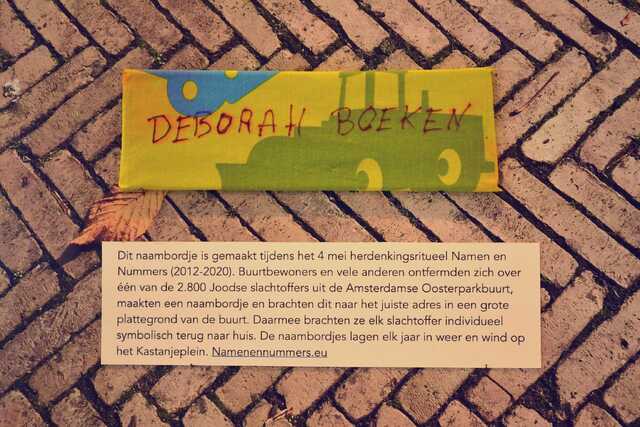 DEBORAH BOEKEN
Dit naambordje is gemaakt tijdens het 4 mei herdenkingsritueel Namen en
Nummers (2012-2020). Buurtbewoners en vele anderen ontfermden zich over
één van de 2.800 Joodse slachtoffers uit de Amsterdamse Oosterparkbuurt,
maakten een naambordje en brachten dit naar het juiste adres in een grote
plattegrond van de buurt. Daarmee brachten ze elk slachtoffer individueel
symbolisch terug naar huis. De naambordjes lagen elk jaar in weer en wind op
het Kastanjeplein. Namenennummers.eu